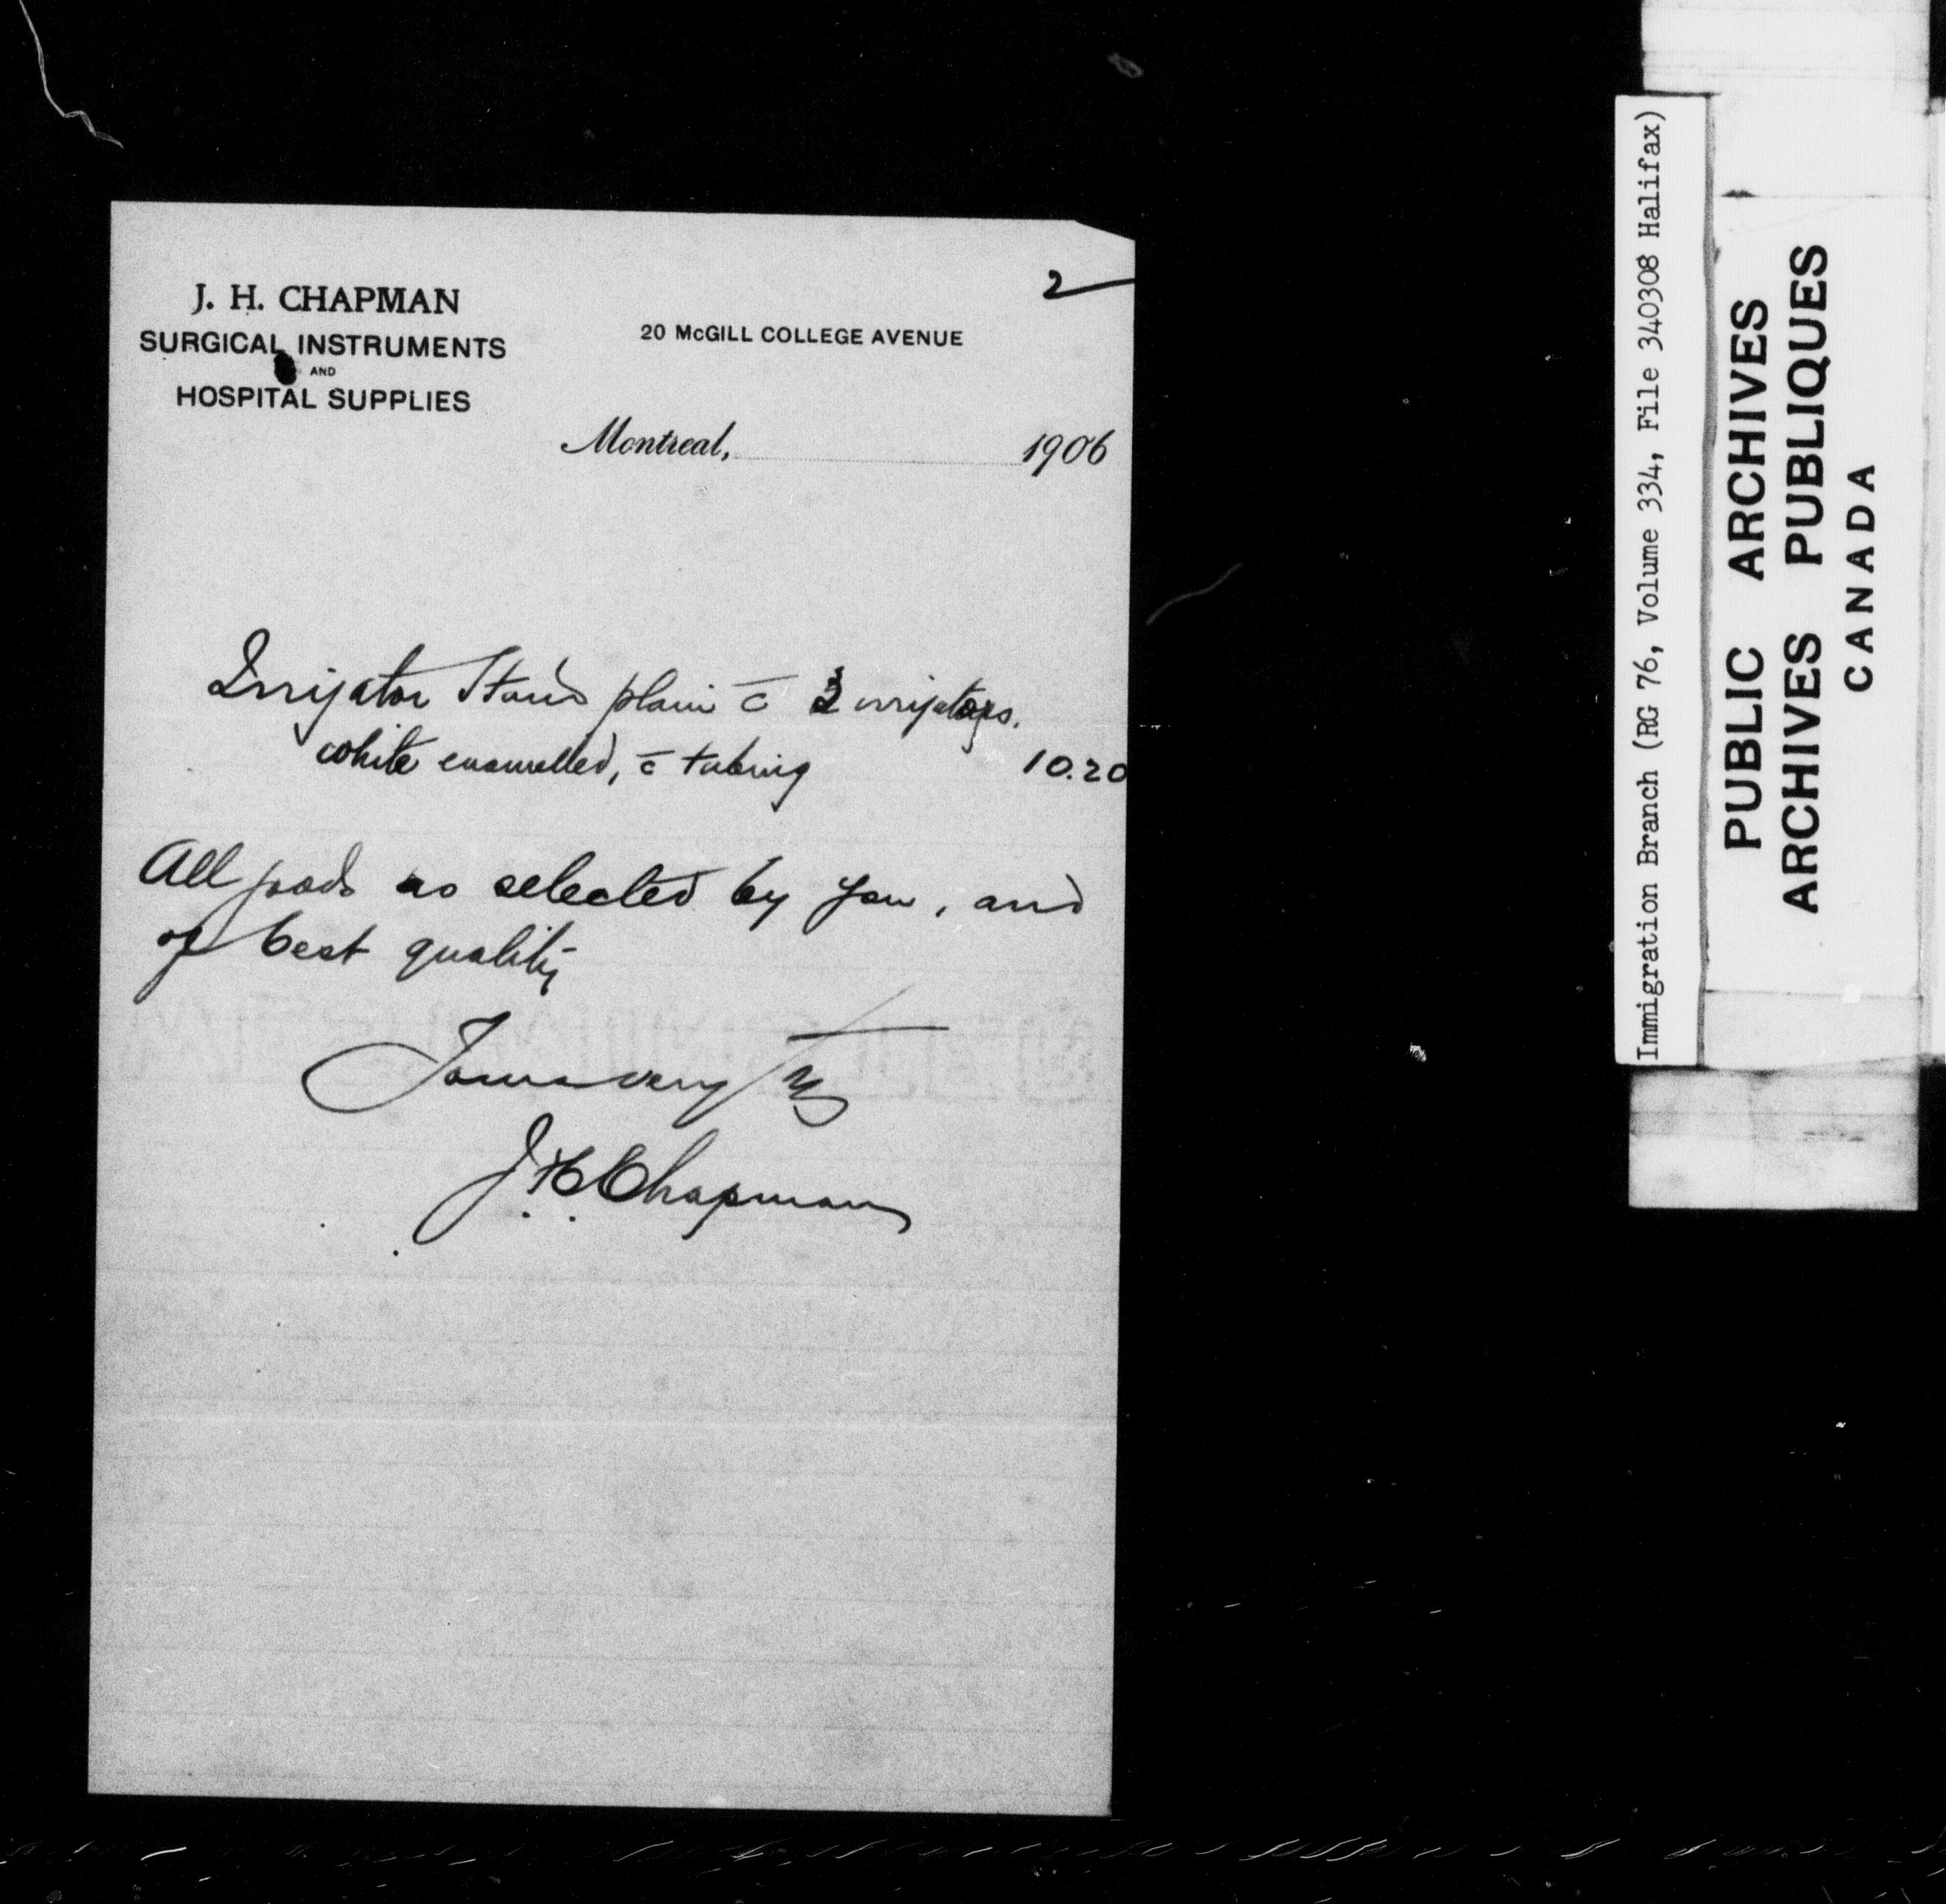 2
J. H. CHAPMAN
SURGICAL INSTRUMENTS
AND
HOSPITAL SUPPLIES
20 McGILL COLLEGE AVENUE
Montreal, 1906
Irrigator Stand plain c̄ 2 irrigators.
white enamelled, c̄ tubing 10.20
All goods as selected by you, and
of best quality
Yours very
J. H. Chapman
Immigration Branch (RG 76, Volume 334, File 340308 Halifax)
PUBLIC ARCHIVES
ARCHIVES PUBLIQUES
CANADA